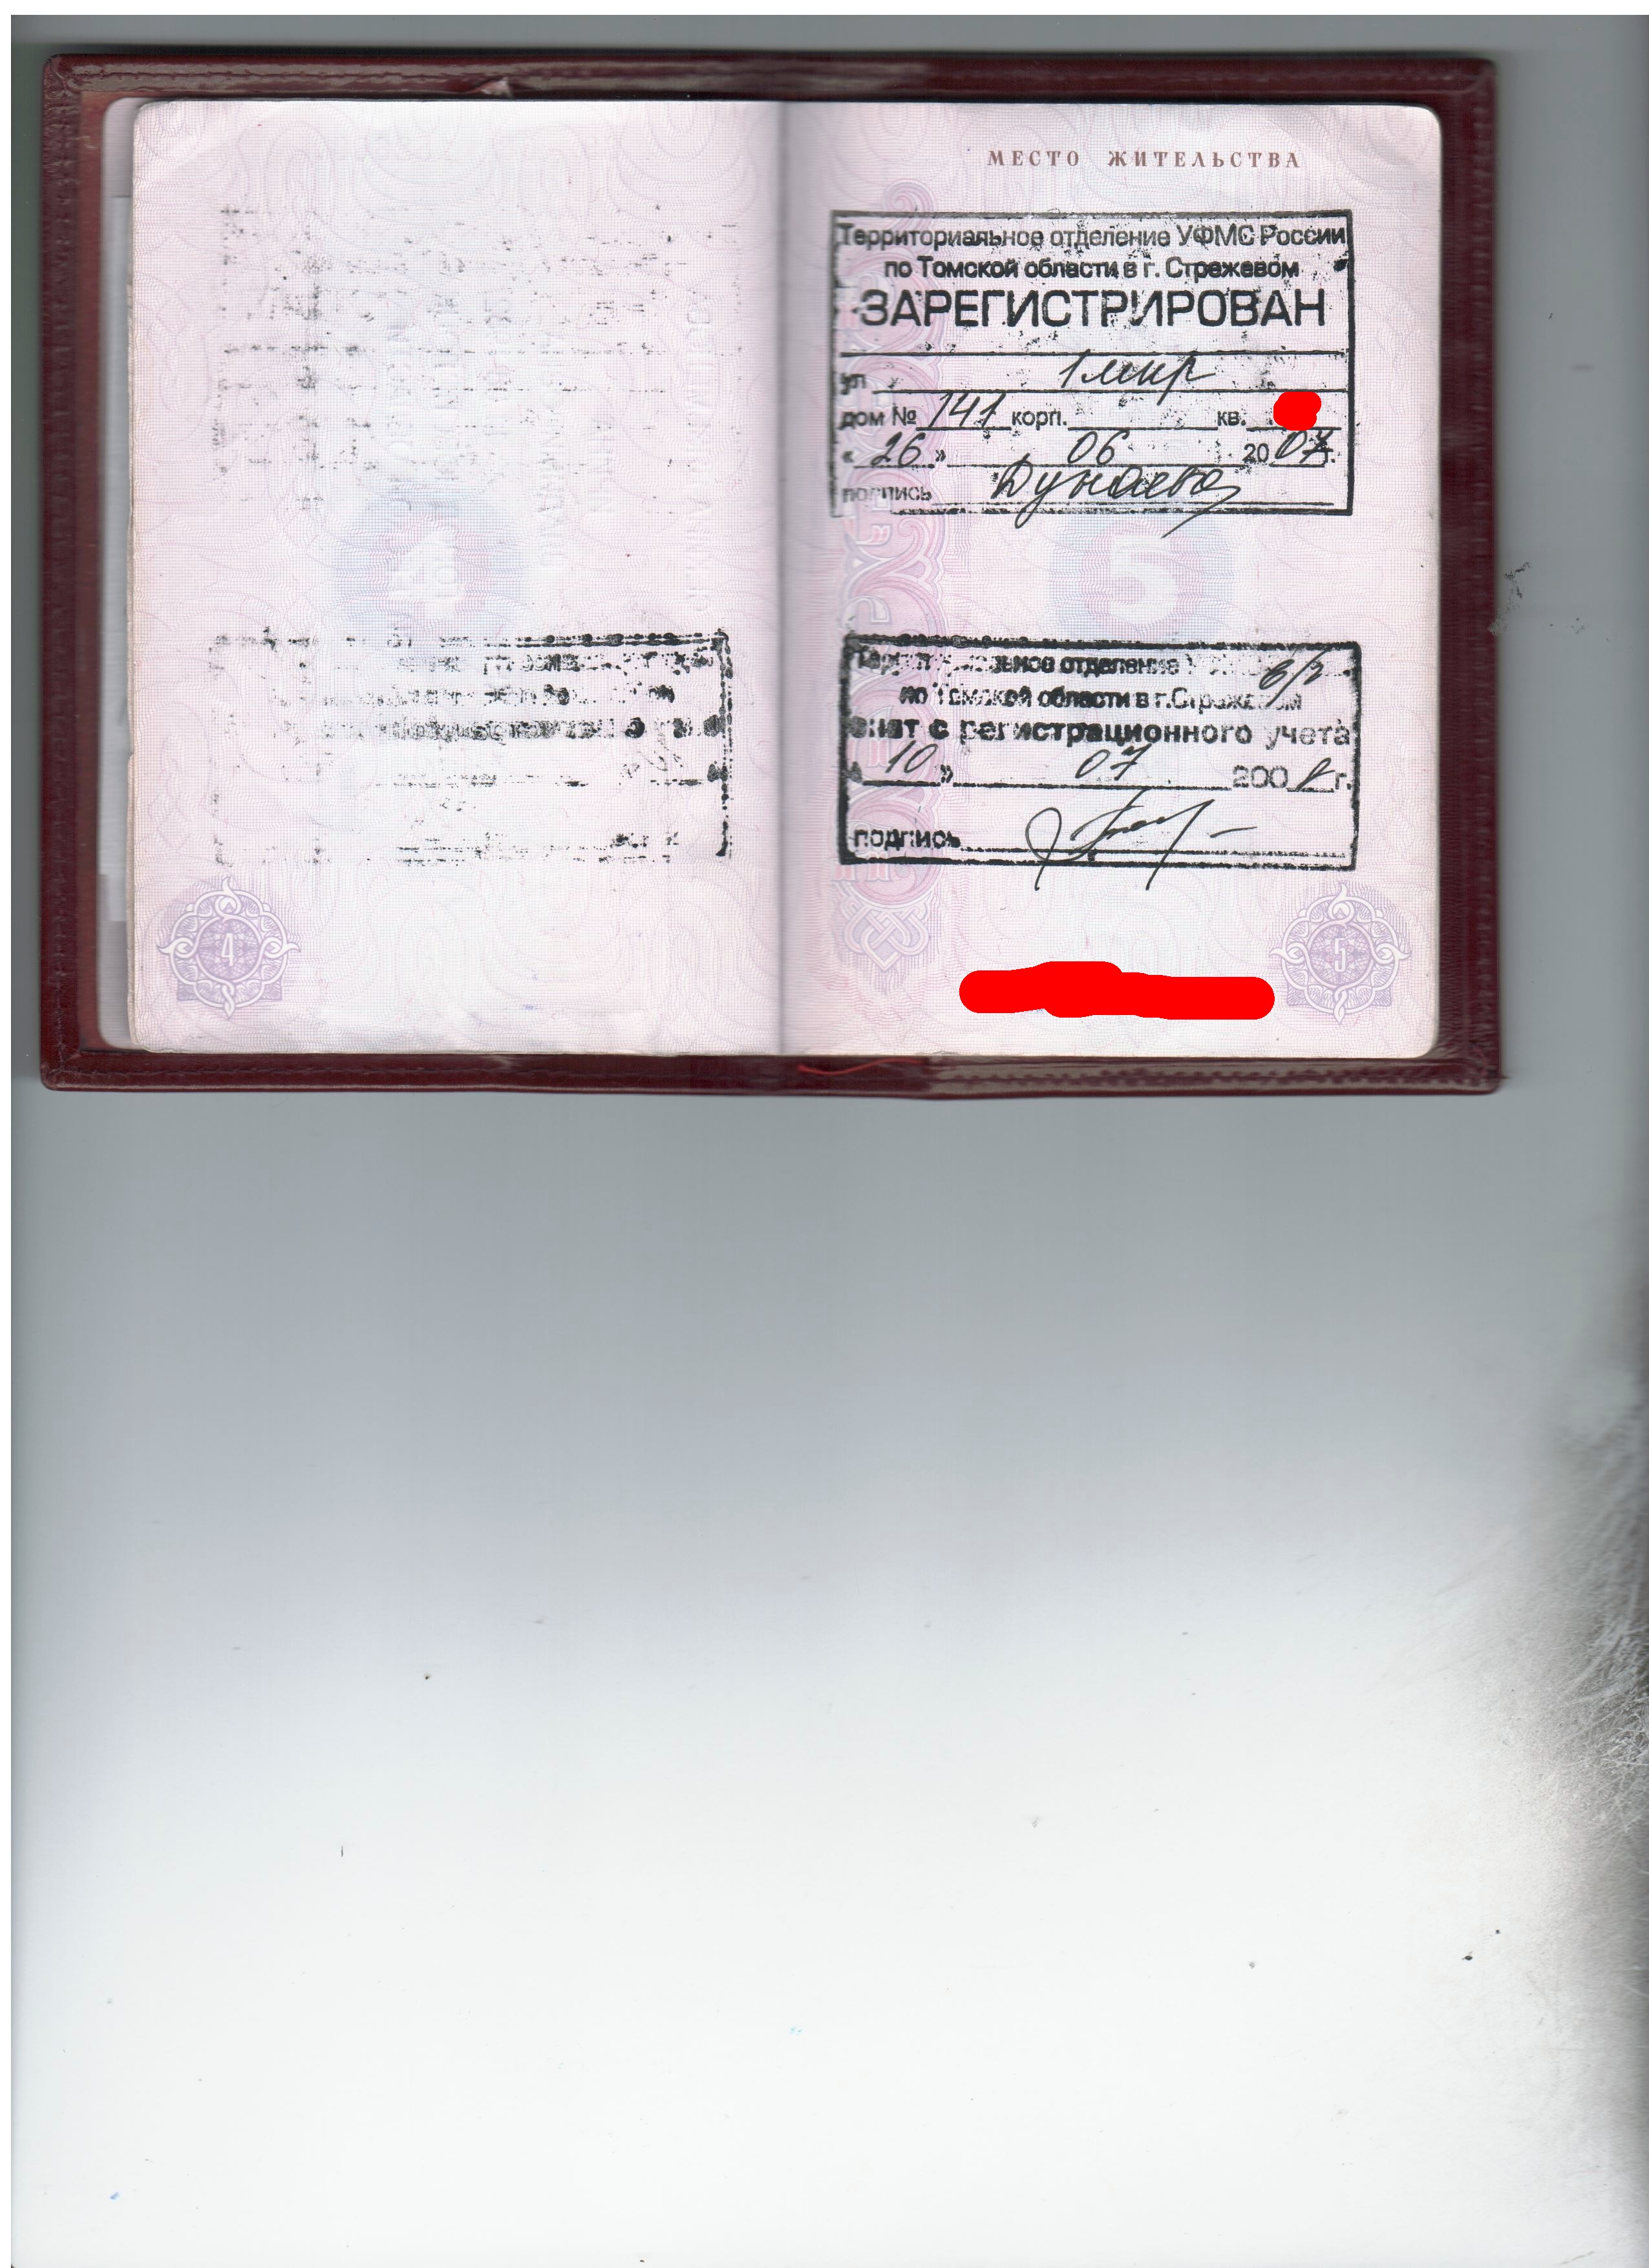 МЕСТО ЖИТЕЛЬСТВА
Территориальное отделение УФМС России
по Томской области в г. Стрежевом
ЗАРЕГИСТРИРОВАН
ул 1 мкр
дом № 141 корп. кв.
« 26 » 06 20 07 г.
подпись Дунаева
4
5
отделение
по Томской области в г. Стрежевом
снят с регистрационного учета
« 10 » 07 200 г.
подпись
4
5